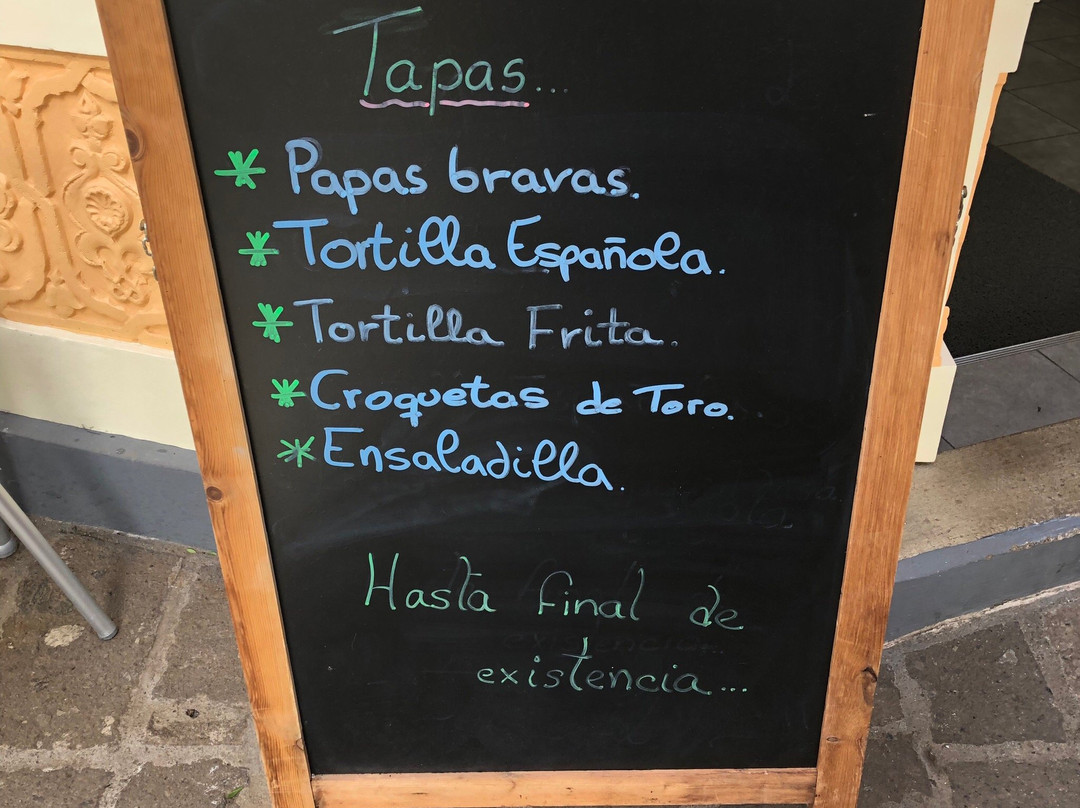 Tapas...
* Papas bravas.
* Tortilla Española.
* Tortilla Frita.
* Croquetas de Toro.
* Ensaladilla.
Hasta final de
existencia...